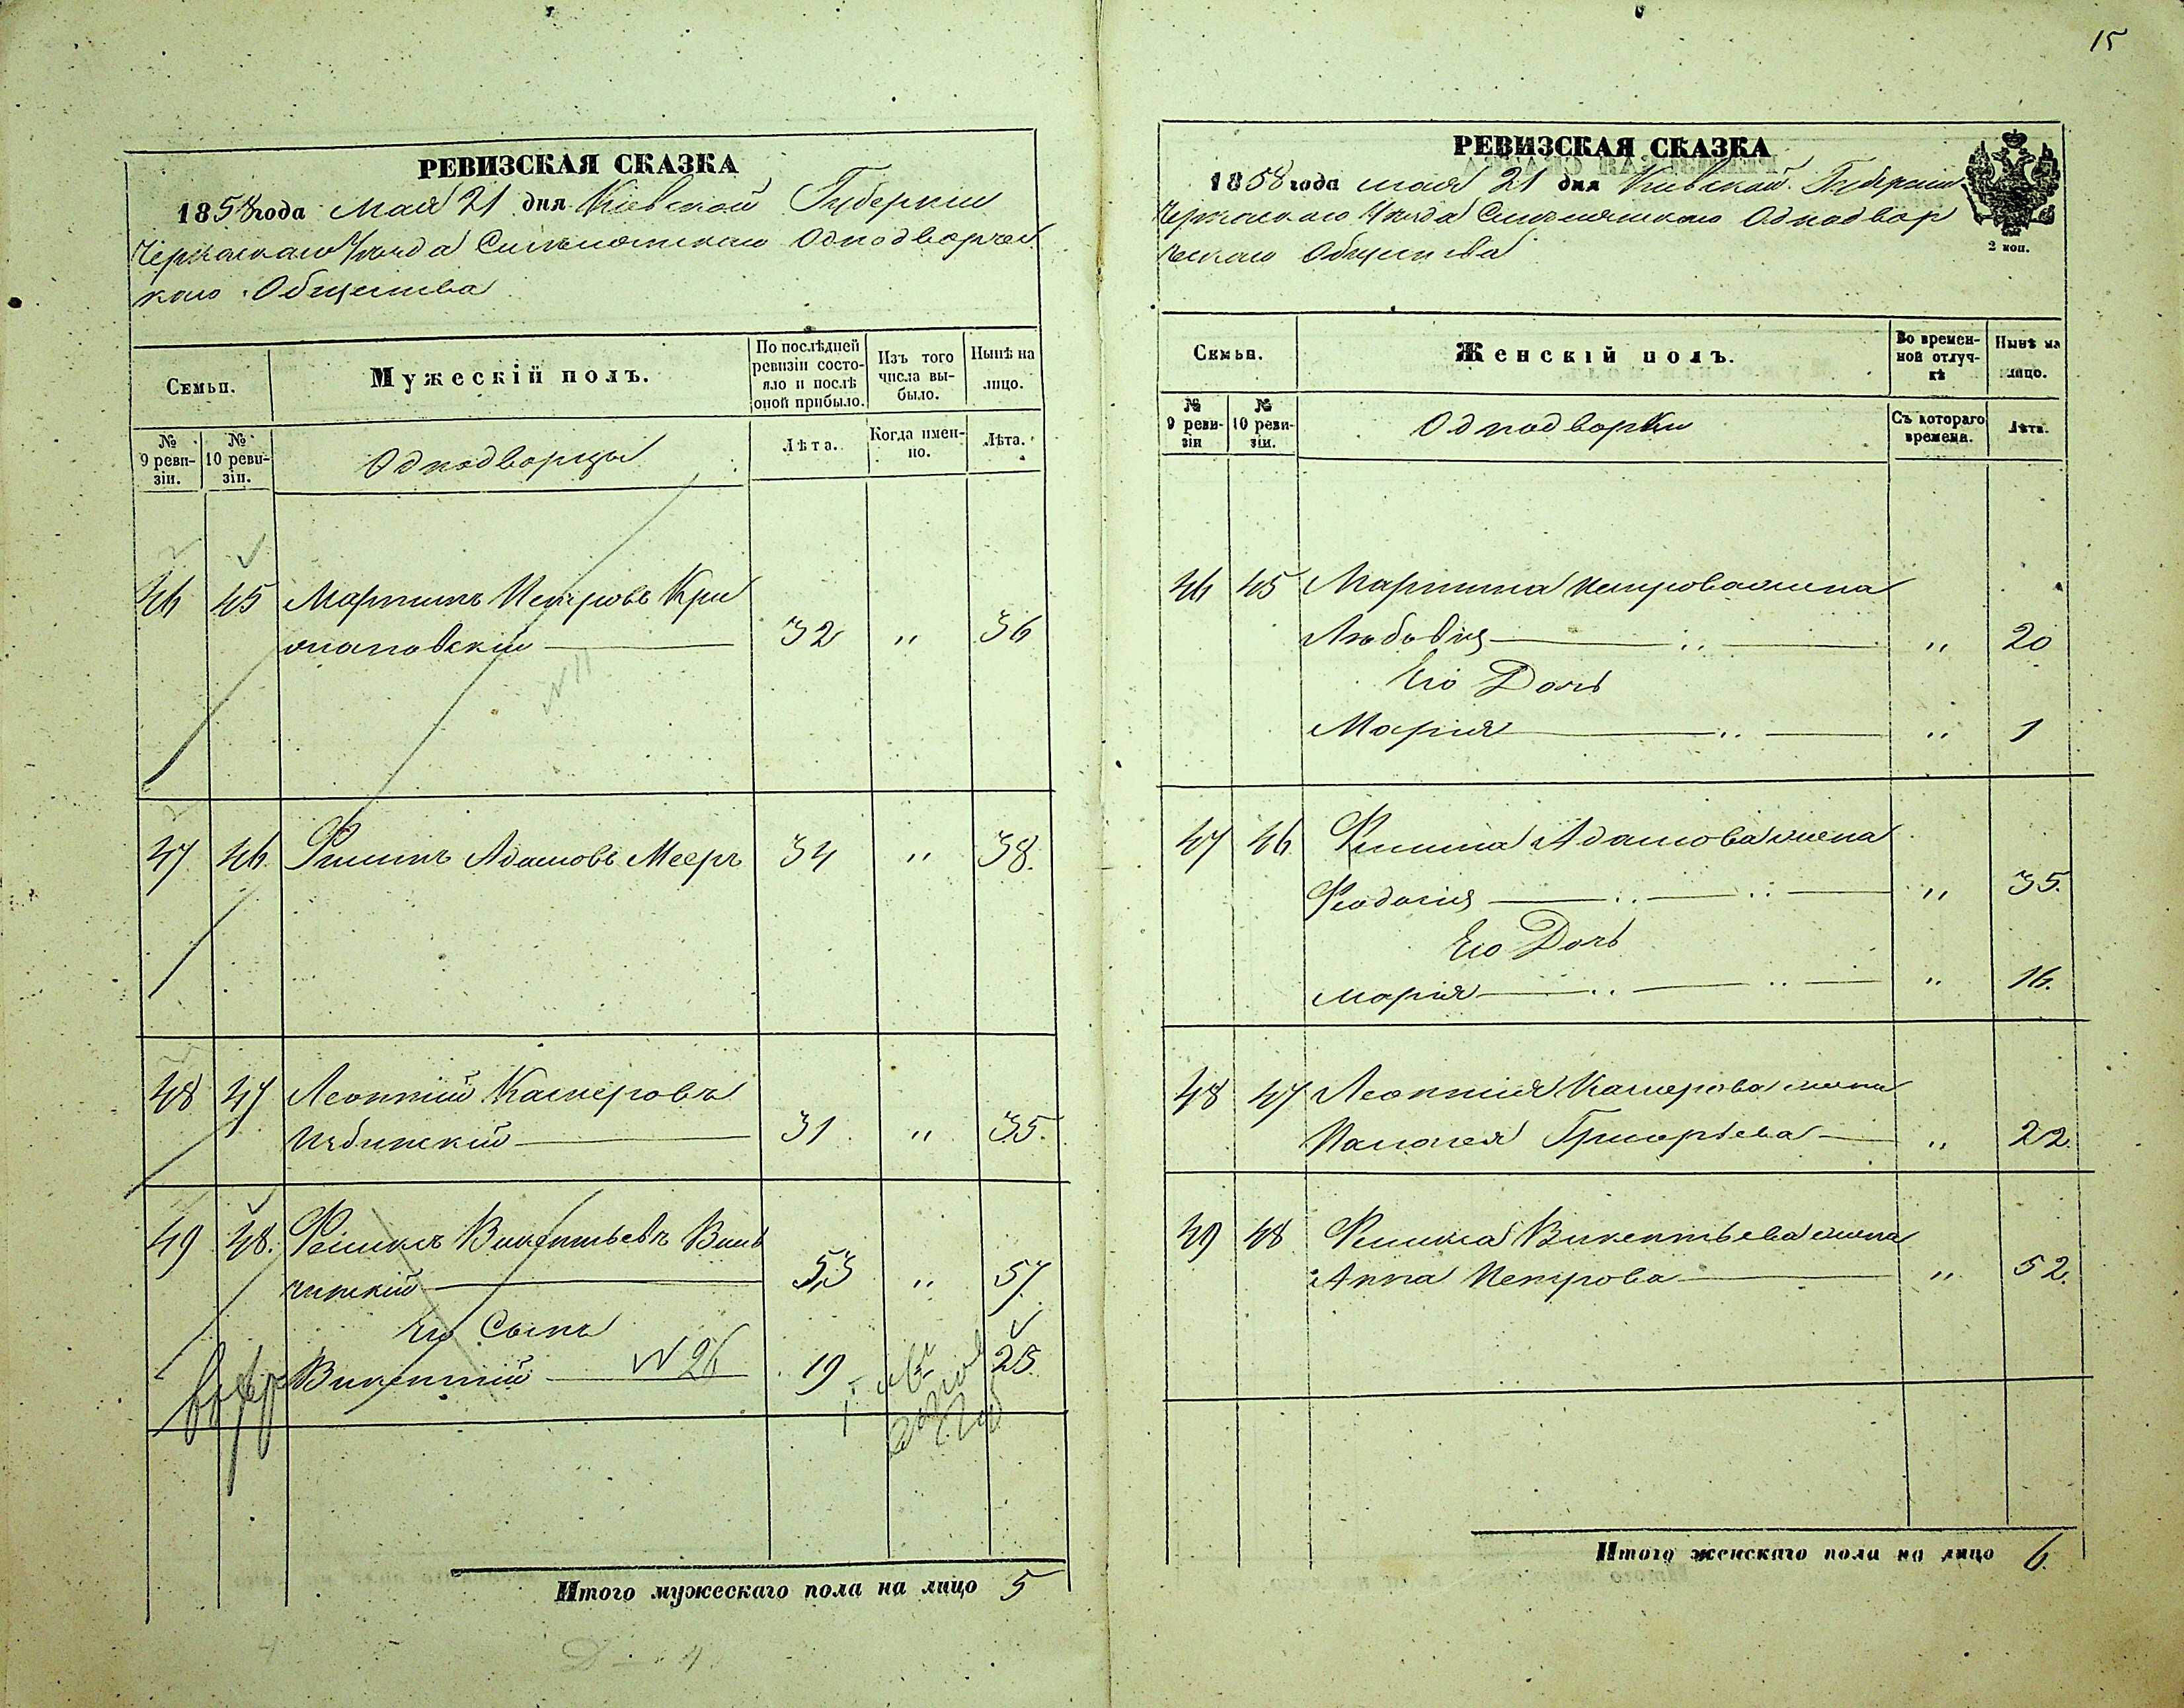 15
РЕВИЗСКАЯ СКАЗКА
1858 года мая 21 дня Кіевской Губерніи
Черкаскаго Уѣзда Смѣлянскаго Однодворчес
каго Общества
Семьи.
Мужескій полъ.
По послѣдней ревизіи состояло и послѣ оной прибыло.
Изъ того числа выбыло.
Нынѣ на лицо.
№ 9 ревизіи.
№ 10 ревизіи.
Однодворцы
Лѣта.
Когда именно.
Лѣта.
46 45 Мартинъ Петровъ
32 " 36
N 11
47 46. Адамовъ Мееръ 34 " 38.
48 47 Леонтій
31 " 35.
49 48. Викентьевъ
53 " 57
Его Сынъ
Викентій N 26 19 25
Итого мужескаго пола на лицо 5
РЕВИЗСКАЯ СКАЗКА
1858 года мая 21 дня Кіевской Губерніи
Черкаскаго Уѣзда Смѣлянскаго Однодвор
ческаго Общества
2 коп.
Семьи.
Женскій полъ.
Во временной отлучкѣ
Нынѣ на лицо.
№ 9 ревизіи
№ 10 ревизіи.
Однодворки
Съ котораго времени.
Лѣта.
46 45 Мартина Петрова жена
Любовія " 20
Его Дочь
Марія " 1
47 46 Адамова жена
Феодосія " 35.
Его Дочь
Марія " 16.
48 47 Леонтія жена
Григорьева " 22.
49 48 Викентьева жена
Анна Петрова " 52.
Итого женскаго пола на лицо 6.